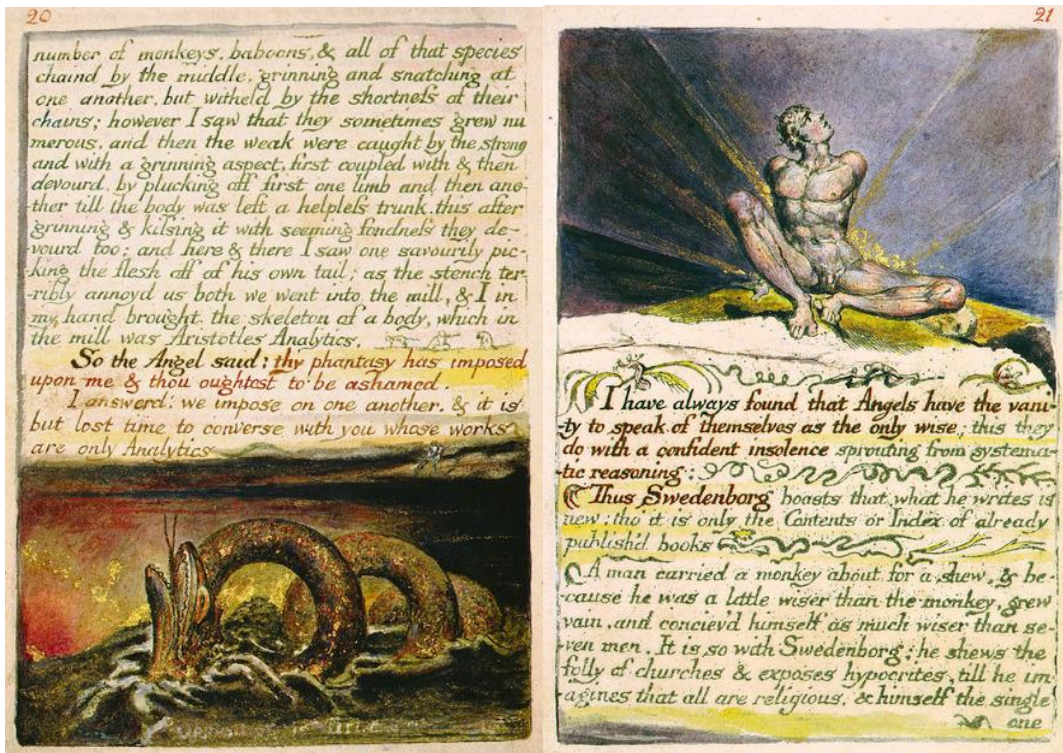 20
number of monkeys, baboons, & all of that species
chaind by the middle, grinning and snatching at
one another, but witheld by the shortness of their
chains; however I saw that they sometimes grew nu
merous, and then the weak were caught by the strong
and with a grinning aspect, first coupled with & then
devourd, by plucking off first one limb and then ano-
ther till the body was left a helpless trunk. this after
grinning & kissing it with seeming fondness they de-
vourd too; and here & there I saw one savourily pic-
king the flesh off of his own tail; as the stench ter-
ribly annoyd us both we went into the mill, & I in
my hand brought the skeleton of a body, which in
the mill was Aristotles Analytics.
So the Angel said: thy phantasy has imposed
upon me & thou oughtest to be ashamed.
I answerd: we impose on one another, & it is
but lost time to converse with you whose works
are only Analytics
21
I have always found that Angels have the vani-
ty to speak of themselves as the only wise; this they
do with a confident insolence sprouting from systema-
tic reasoning:
Thus Swedenborg boasts that what he writes is
new; tho it is only the Contents or Index of already
publish'd books
A man carried a monkey about for a shew, & be-
cause he was a little wiser than the monkey, grew
vain, and conciev'd himself as much wiser than se-
ven men. It is so with Swedenborg; he shews the
folly of churches & exposes hypocrites, till he im-
agines that all are religious, & himself the single
one